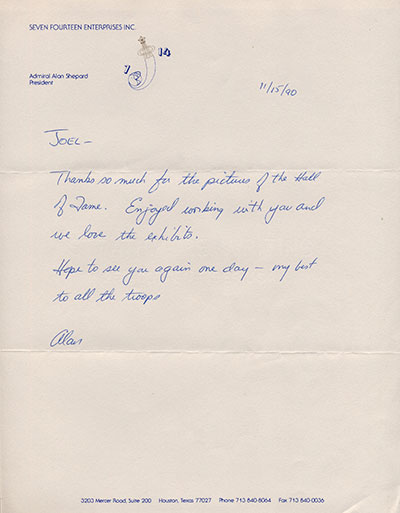 SEVEN FOURTEEN ENTERPRISES INC.
7 14
Admiral Alan Shepard
President
11/15/90
JOEL—
Thanks so much for the pictures of the Hall
of Fame. Enjoyed working with you and
we love the exhibits.
Hope to see you again one day — my best
to all the troops
Alan
3203 Mercer Road, Suite 200 Houston, Texas 77027 Phone 713 840-8064 Fax 713 840-0036